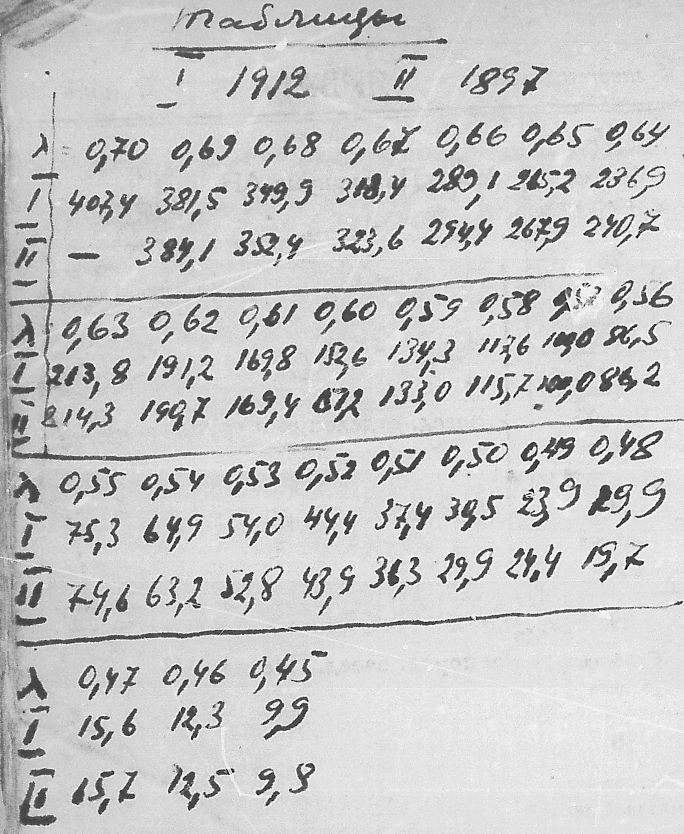 Таблицы
I 1912 II 1897
λ 0,70 0,69 0,68 0,67 0,66 0,65 0,64
I 403,4 381,5 349,9 318,4 289,1 265,2 236,9
II — 384,1 352,4 323,6 294,4 267,9 240,7
λ 0,63 0,62 0,61 0,60 0,59 0,58 0,56
I 213,8 191,2 169,8 152,6 134,3 117,6 100,0 86,5
II 214,3 190,7 169,4 133,0 115,7 100,0 86,2
λ 0,55 0,54 0,53 0,52 0,51 0,50 0,49 0,48
I 75,3 64,9 54,0 44,4 37,4 30,5 23,9 19,9
II 74,6 63,2 52,8 43,9 36,3 29,9 24,4 19,7
λ 0,47 0,46 0,45
I 15,6 12,3 9,9
II 15,7 12,5 9,8